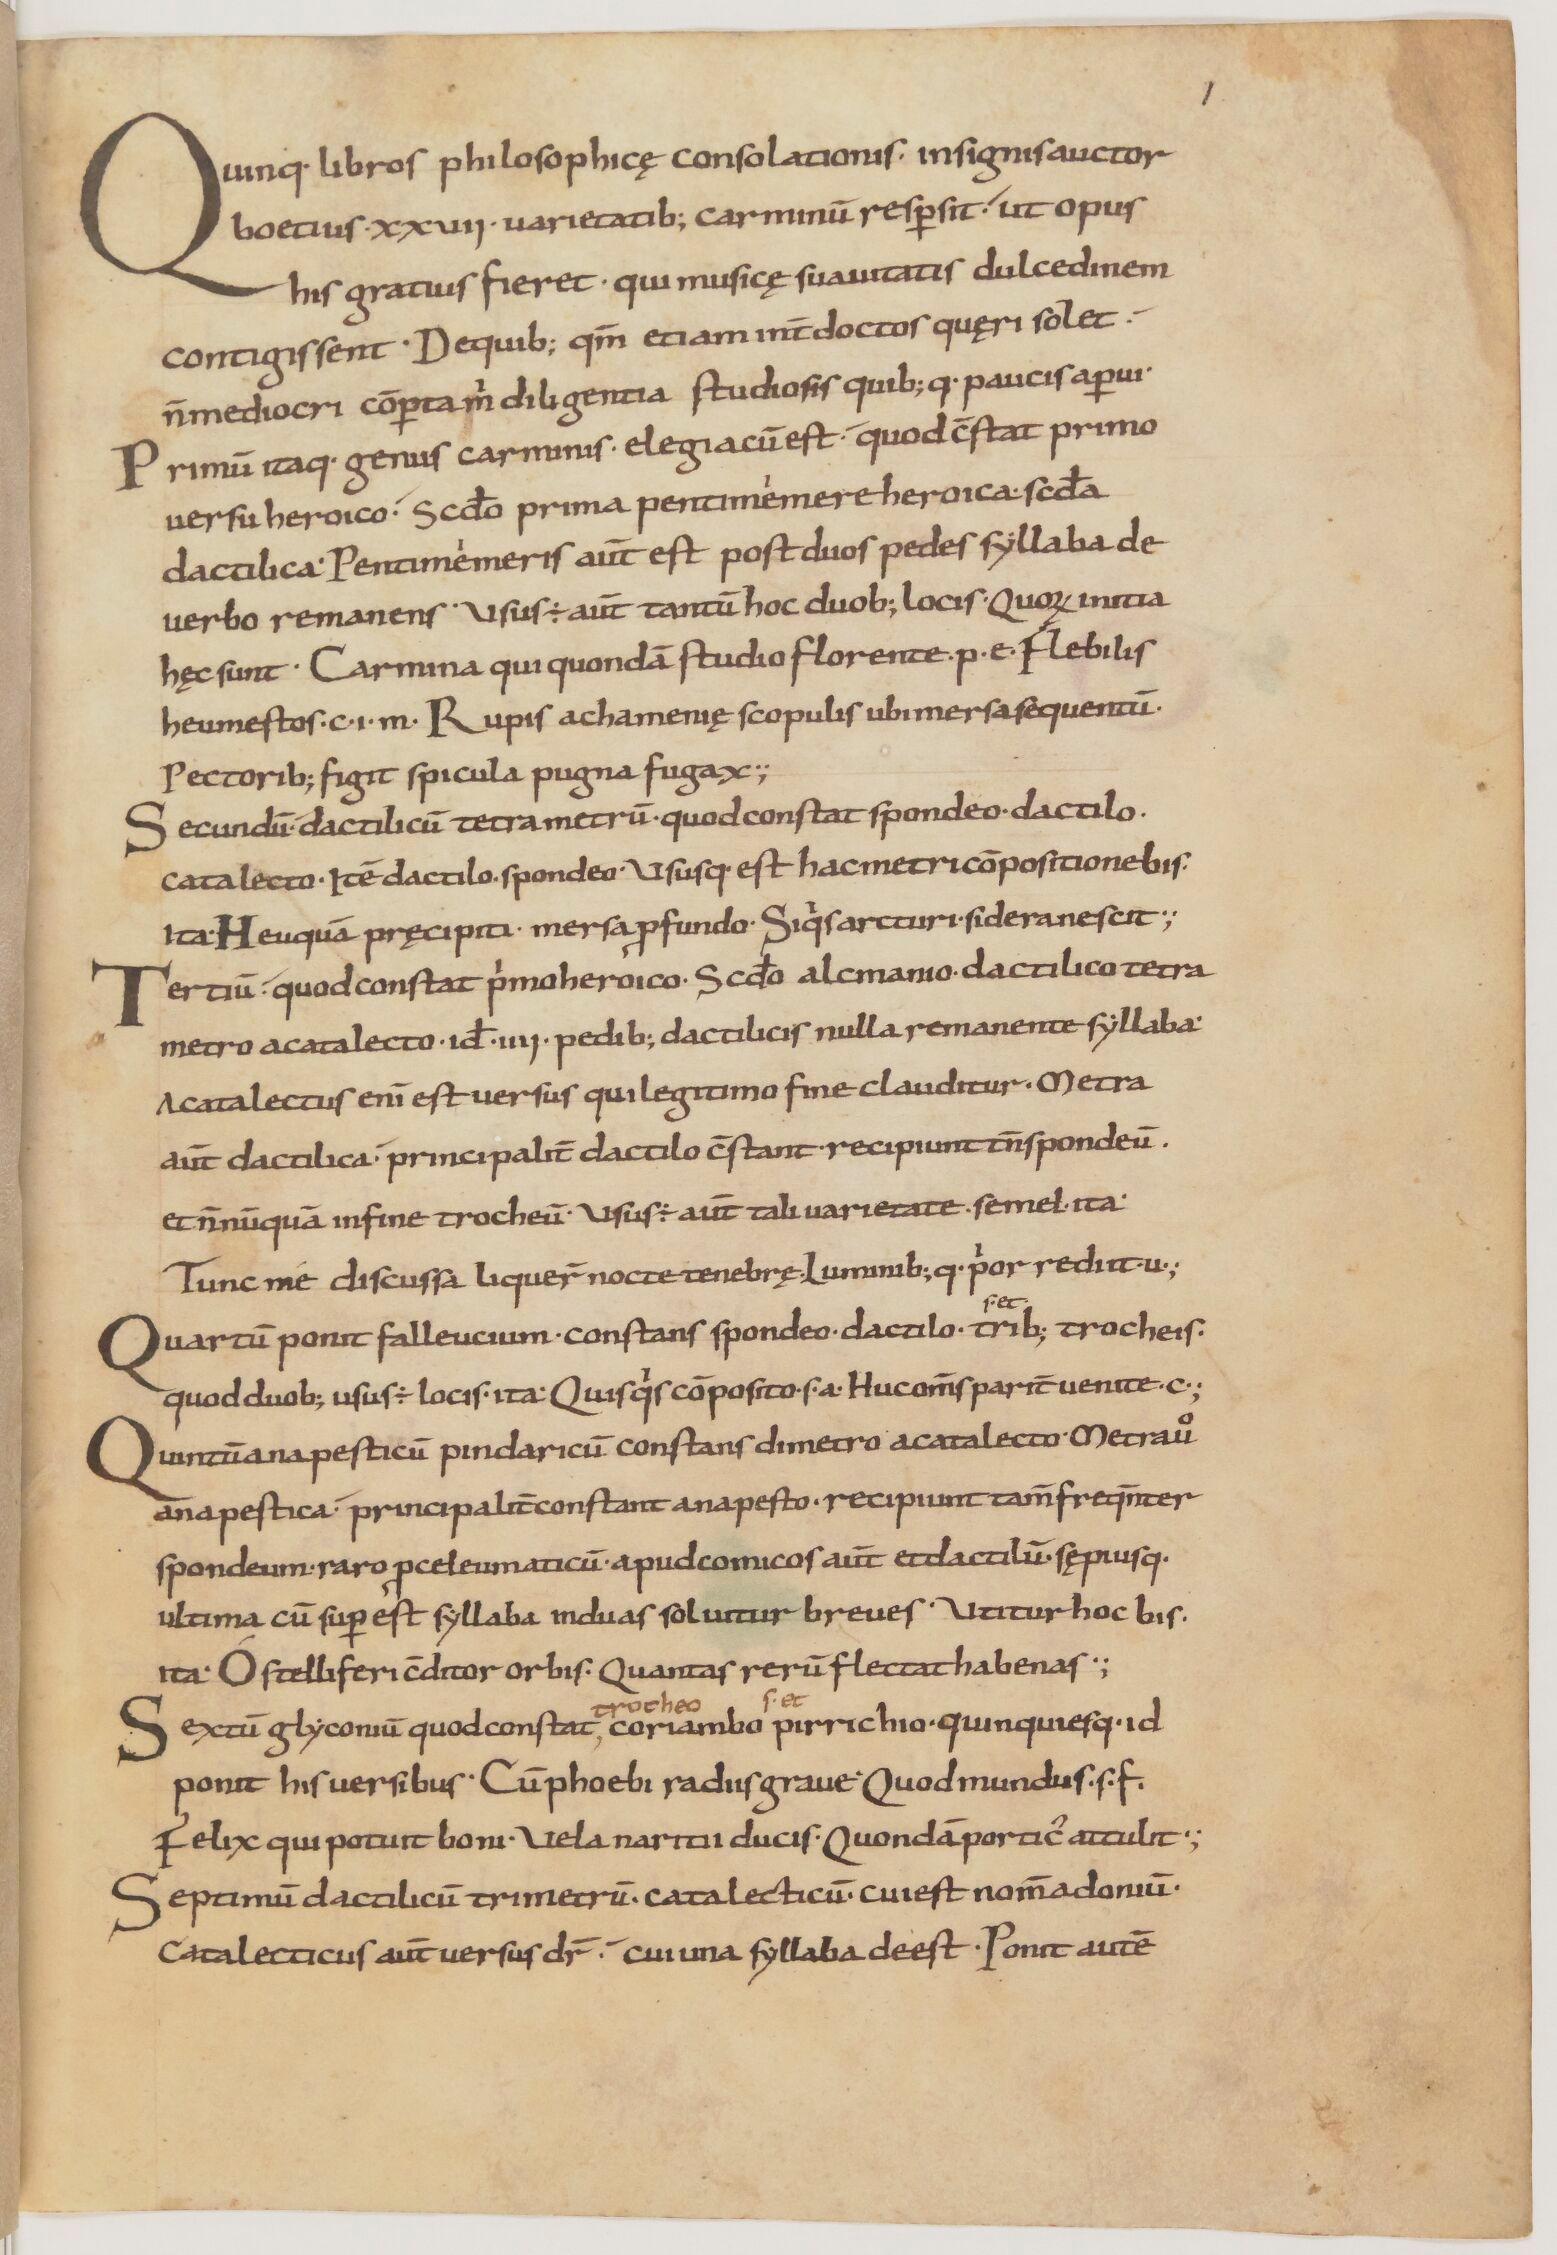 1
Quinq· libros philosophicę consolationis· insignis auctor
boetius·xxvii·uarietatib; carminū resꝑsit·́ ut opus
his gratius fieret· qui musicę suauitatis dulcedinem
contigissent· De quib; qm̄ etiam int̄ doctos quęri solet·́
n̄ mediocri cōꝑtam̄ diligentia studiosis quib;q· paucis aꝑui·
Primū itaq· genus carminis· elegiacū est·́ quod c̄stat primo
uersu heroico·́ Scd̄o prima pentimemere heroica· scd̄a
dactilica· Pentimemeris aut̄ est post duos pedes syllaba de
uerbo remanens· Usus ÷ aut̄ tantū hoc duob; locis· Quoꝝ initia
hęc sunt· Carmina qui quondā studio florente·p·e· Flebilis
heu mestos·c·i·m· Rupis achamenię scopulis ubi mersa sequentū·
Pectorib; figit spicula pugna fugax·;
Secundū·́ dactilicū tetrametrū· quod constat spondeo· dactilo·
catalecto· Itē dactilo· spondeo· Ususq· est hac metri cōpositione bis·
ita· Heu quā pręcipiti· mersa ꝓfundo· Si qͥs arcturi· sidera nescit·;
Tertiū·́ quod constat pͥmo heroico· Scd̄o alcmanio· dactilico tetra
metro acatalecto· id̄·iiii· pedib; dactilicis nulla remanente syllaba·
Acatalectus eni̅ est uersus qui legitimo fine clauditur· Metra
aut̄ dactilica·́ principalit̄ dactilo c̄stant· recipiunt tn̄ spondeū·
et n̄nūquā in fine trocheū· Usus ÷ aut̄ tali uarietate· semel· ita·
Tunc me discussa liquer̄ nocte tenebrę· Luminib;q· pͥor rediit·u·;
Quartū ponit falleucium· constans spondeo· dactilo· trib; trocheis·
s·et·
quod duob; usus ÷ locis· ita· Quisqͥs cōposito·s·a· Huc om̄s parit̄ uenite·c·;
Quintū anapesticū pindaricū constans dimetro acatalecto· Metra uͦ
anapestica·́ principalit̄ constant anapesto· recipiunt tam̄ freqn̄ter
spondeum· raro ꝓceleumaticū· apud comicos aut̄ et dactilū· sępiusq·
ultima cū suꝑest syllaba in duas soluitur breues· Utitur hoc bis·
ita· O stelliferi c̄ditor orbis· Quantas rerū flectat habenas·;
Sextū glyconiū quod constat, coriambo pirrichio· quinquiesq· id
trocheo s·et
ponit his uersibus· Cū phoebi radiis graue· Quod mundus·s·f·
Felix qui potuit boni· Uela naritii ducis· Quondā porticꝰ attulit·;
Septimū dactilicū trimetrū· catalecticū· cui est nom̄ adoniū·
Catalecticus aut̄ uersus dr̄·́ cui una syllaba deest· Ponit autē